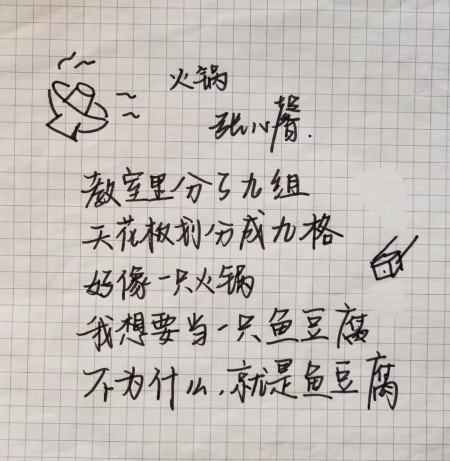 火锅
张小馨.
教室里分了九组
天花板划分成九格
好像一只火锅
我想要当一只鱼豆腐
不为什么,就是鱼豆腐